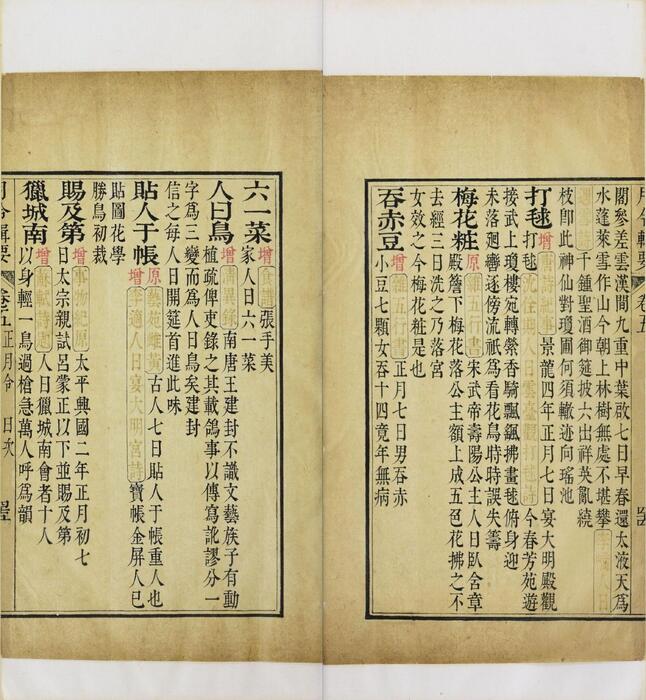 月令輯要 卷五
閣參差雲漢間九重中葉啟七日早春還太液天爲
水蓬萊雪作山今朝上林樹無處不堪攀
千鍾聖酒御筵披六出祥英亂繞
枝卽此神仙對瓊圃何須轍迹向瑤池
打毬 增 景龍四年正月七日宴大明殿觀
打毬 今春芳苑遊
接武上瓊樓宛轉縈香騎飄颻拂畫毬俯身迎
未落迴轡逐傍流祇爲看花鳥時時誤失籌
梅花粧 原 雜五行書 宋武帝壽陽公主人日臥含章
殿簷下梅花落公主額上成五色花拂之不
去經三日洗之乃落宮
女效之今梅花粧是也
吞赤豆 增 雜五行書 正月七日男吞赤
小豆七顆女吞十四竟年無病
六一菜 增 張手美
家人日六一菜
人日鳥 增 南唐王建封不識文藝族子有動
植疏俾吏錄之其載鴿事以傳寫訛謬分一
字爲三變而爲人日鳥矣建封
信之每人日開筵首進此味
貼人于帳 原 古人七日貼人于帳重人也
增 李適人日宴大明宮詩 寶帳金屏人已
貼圖花學
勝鳥初裁
賜及第 增 事物紀原 太平興國二年正月初七
日太宗親試呂蒙正以下並賜及第
獵城南 增 人日獵城南會者十人
以身輕一鳥過槍急萬人呼爲韻
月令輯要 卷五 正月令 日次